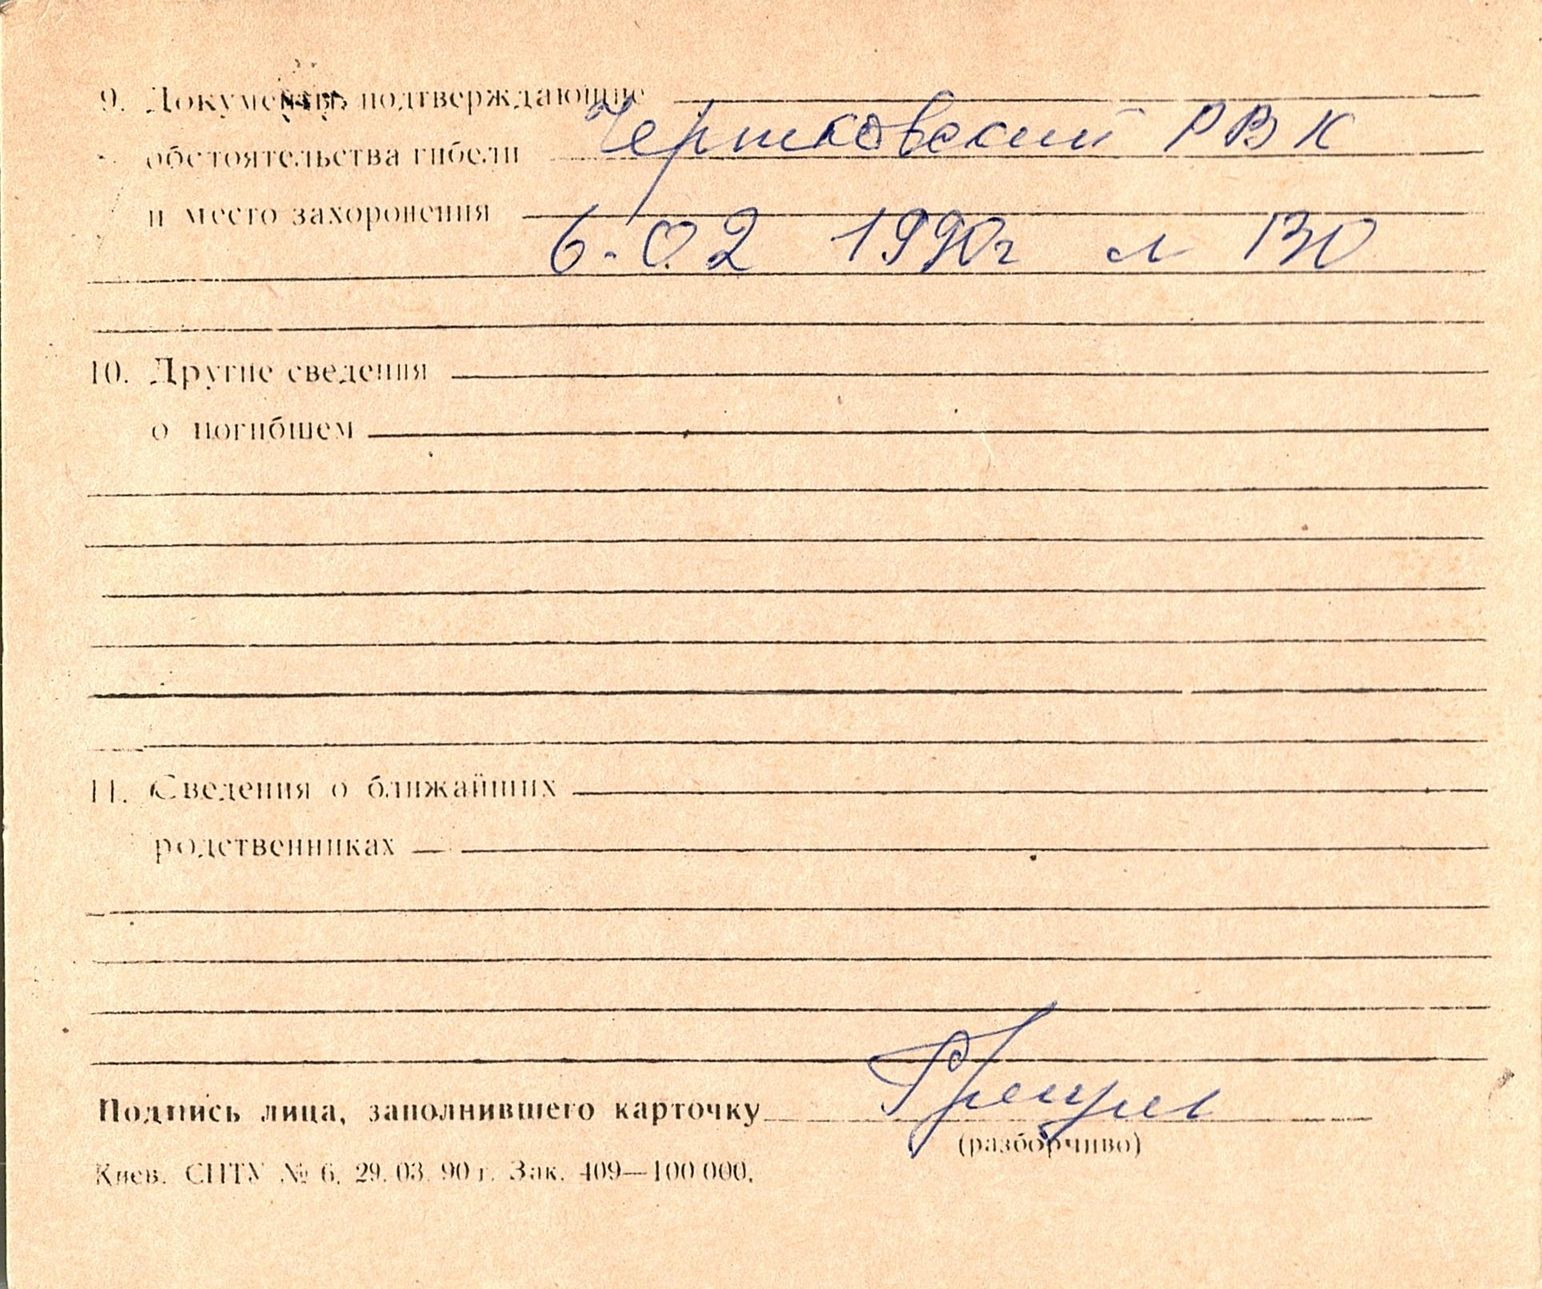 9. Документы подтверждающие
обстоятельства гибели Чертковский РВК
и место захоронения
6.02 1990г л 130
10. Другие сведения
о погибшем
11. Сведения о ближайших
родственниках
Подпись лица, заполнившего карточку
(разборчиво)
Киев. СПТУ № 6. 29. 03. 90 г. Зак. 409—100 000.